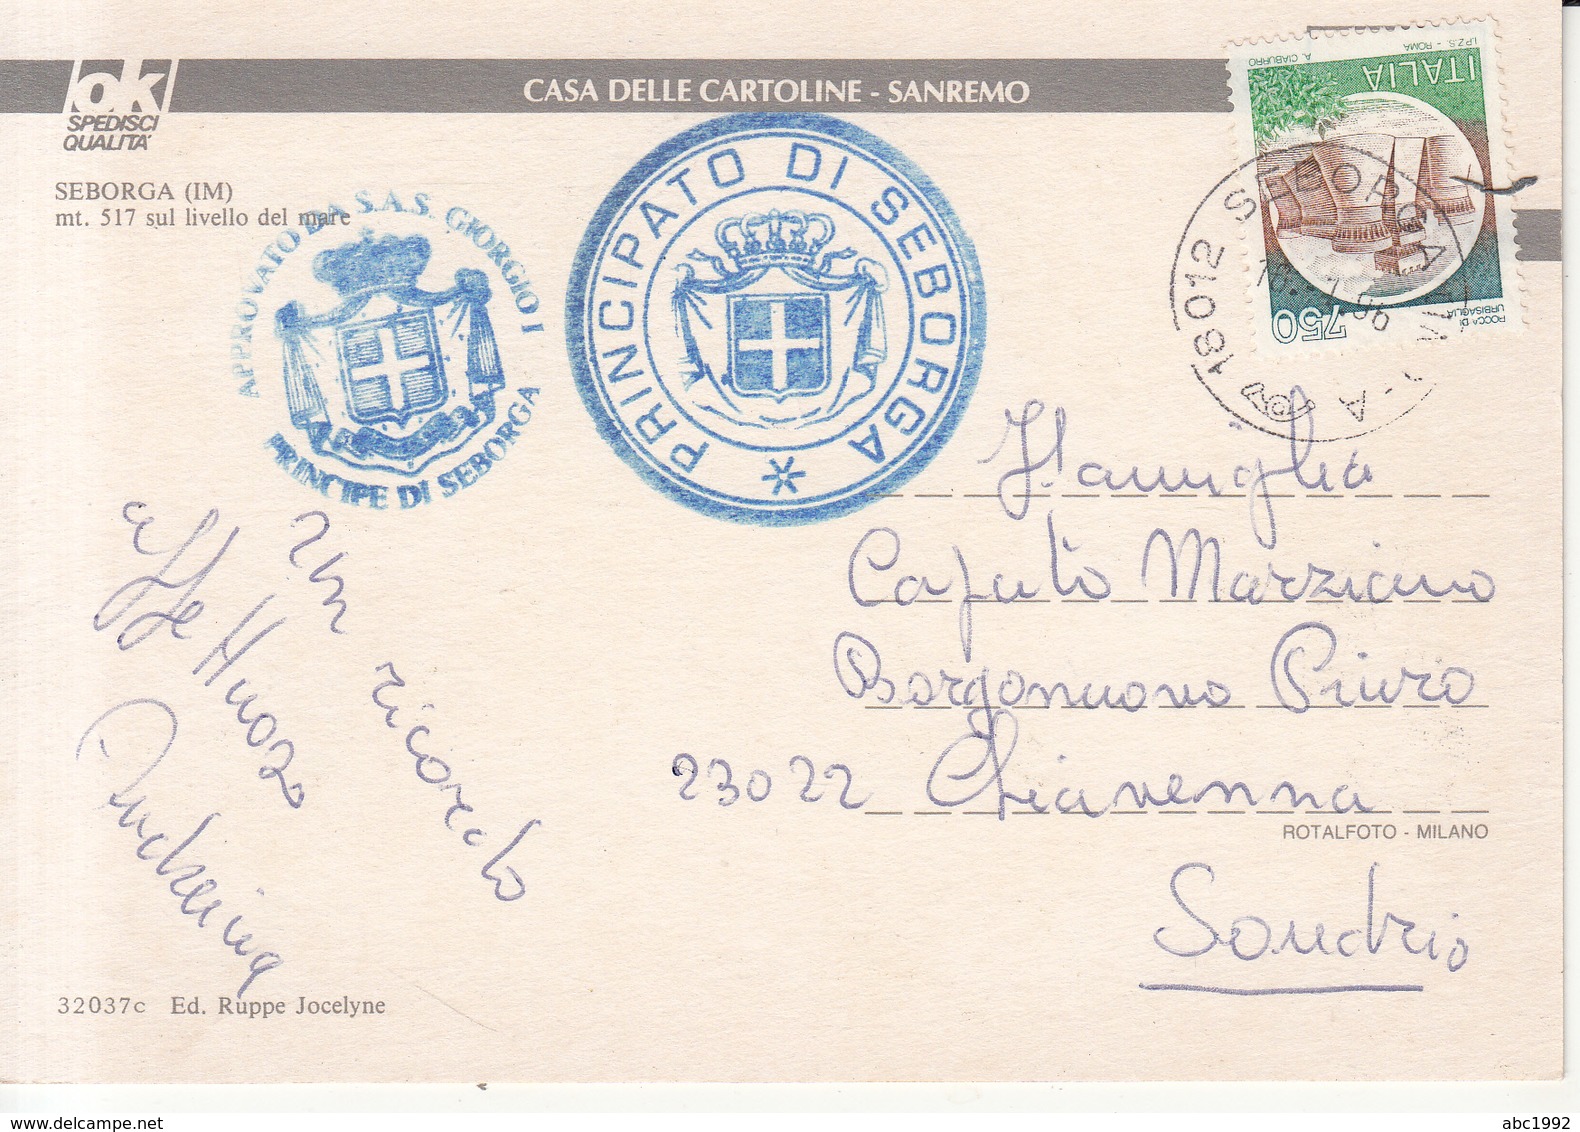 CASA DELLE CARTOLINE - SANREMO
ok
SPEDISCI
QUALITA'
SEBORGA (IM)
mt. 517 sul livello del mare
APPROVATO DA S.A.S. GIORGIO I
PRINCIPE DI SEBORGA
PRINCIPATO DI SEBORGA
ITALIA
I.P.Z.S. - ROMA
A. CIABURRO
ROCCA DI
URBISAGLIA
750
18012 SEBORGA
un ricordo
affettuoso
Famiglia
Caputo Marziano
Borgonuovo Piuro
23022 Chiavenna
ROTALFOTO - MILANO
Sondrio
32037c Ed. Ruppe Jocelyne
www.delcampe.net
abc1992